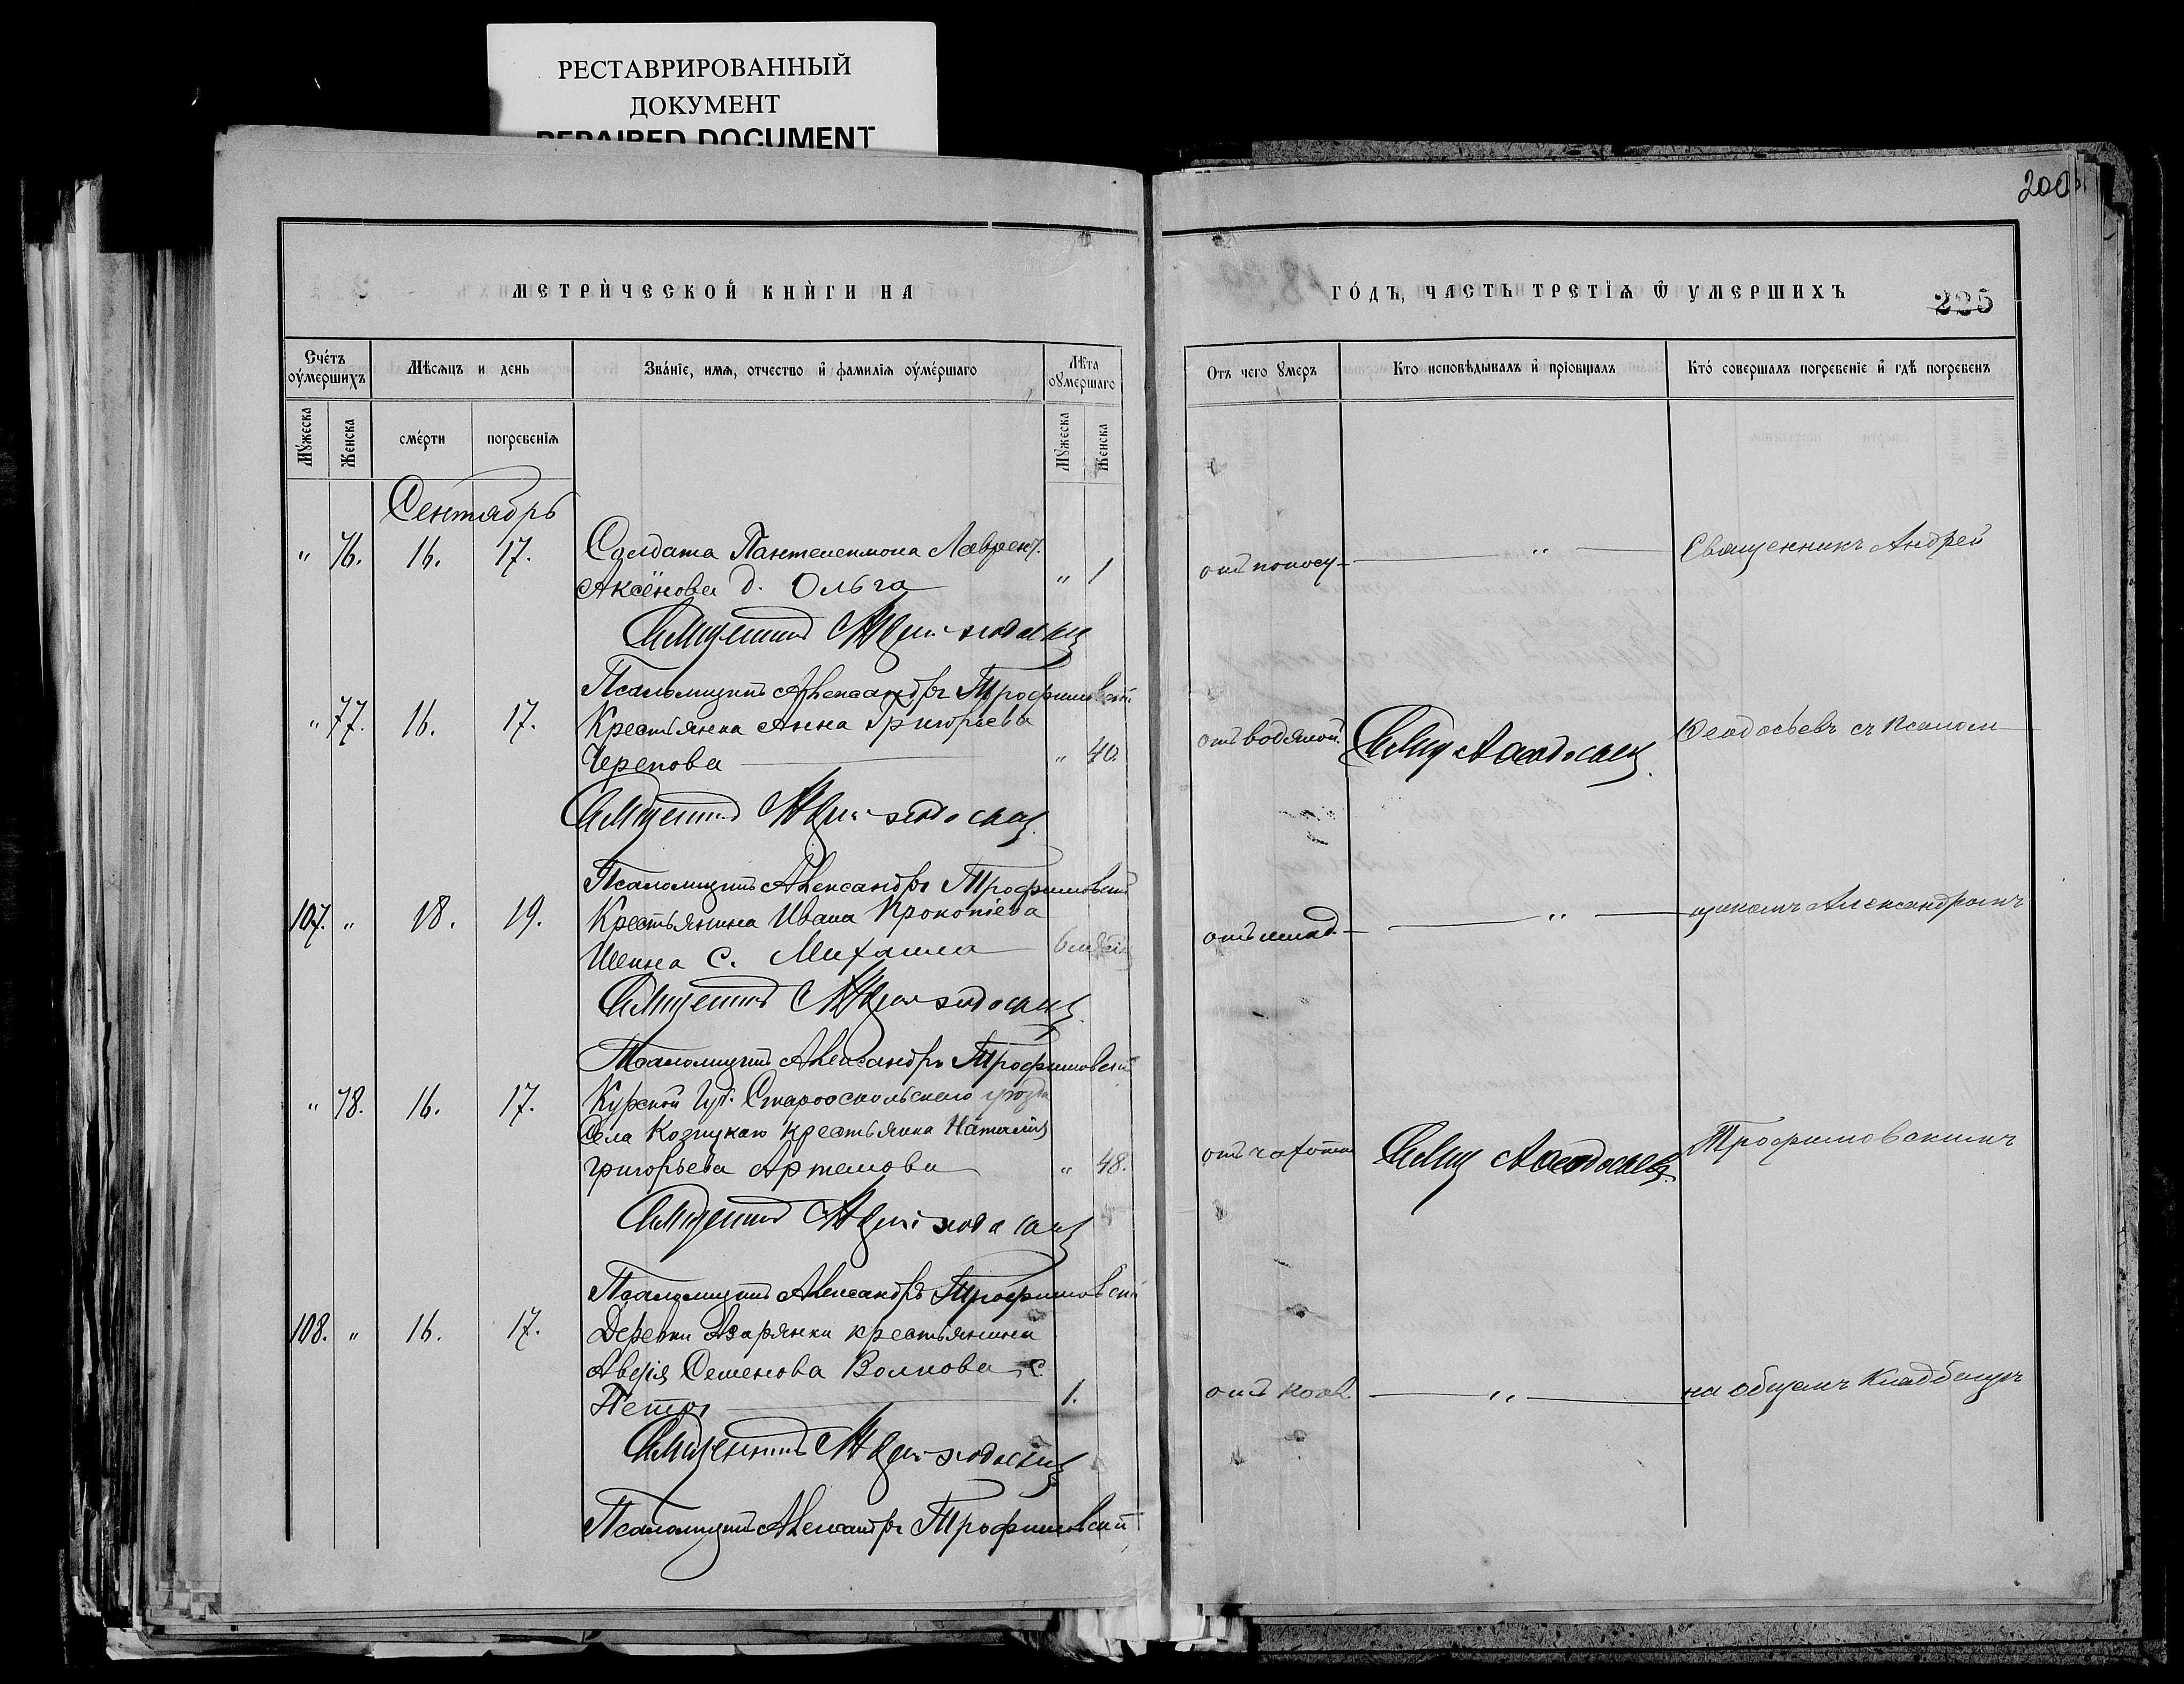 РЕСТАВРИРОВАННЫЙ
ДОКУМЕНТ
REPAIRED DOCUMENT
200
МЕТРИ́ЧЕСКОЙ КНИ́ГИ НА
ГО́ДЪ, ЧАСТЬ ТРЕТІѦ Ѿ УМЕРШИХЪ
225
Сче́тъ оу́мершихъ
Мѣсѧцъ и день
Зва́нїе, имѧ, отчество и҆ фамилїѧ оу́ме́ршаго
Лѣта оумершаго
Отъ чего ꙋмеръ
Кто исповѣдывалъ и҆ прїобщалъ
Кто́ совершалъ погребенїе и҆ гдѣ погребенъ
Мꙋжеска
Женска
сме́рти
погребенїѧ
Мꙋжеска
Женска
Сентябрь
" 76. 16. 17. Солдата Пантелеимона Лаврент.
Аксёнова д. Ольга " 1 отъ поносу — " — Священникъ Андрей
Священникъ Андрей Ѳеодосьевъ
Псаломщикъ Александръ Трофимовскій
" 77. 16. 17. Крестьянка Анна Григорьева
Черепова — " 40. отъ водяной. Свящ. А Ѳеодосьевъ Ѳеодосьевъ съ псалом
Священникъ Андрей Ѳеодосьевъ
Псаломщикъ Александръ Трофимовскій
107. " 18. 19. Крестьянина Ивана Прокопіева
Шеина с. Михаила отъ млад. — " — щикомъ Александромъ
Священникъ Андрей Ѳеодосьевъ
Псаломщикъ Александръ Трофимовскій
" 78. 16. 17. Курской Губ. Старооскольскаго уѣзда
Села крестьянка Наталія
Григорьева Артемова " 48. отъ чахотки Свящ. А Ѳеодосьевъ Трофимовскимъ
Священникъ Андрей Ѳеодосьевъ
Псаломщикъ Александръ Трофимовскій
108. " 16. 17. Деревни Азарянки крестьянина
Семенова Волкова с.
Петръ — 1. отъ — " — на общемъ кладбищѣ
Священникъ Андрей Ѳеодосьевъ
Псаломщикъ Александръ Трофимовскій